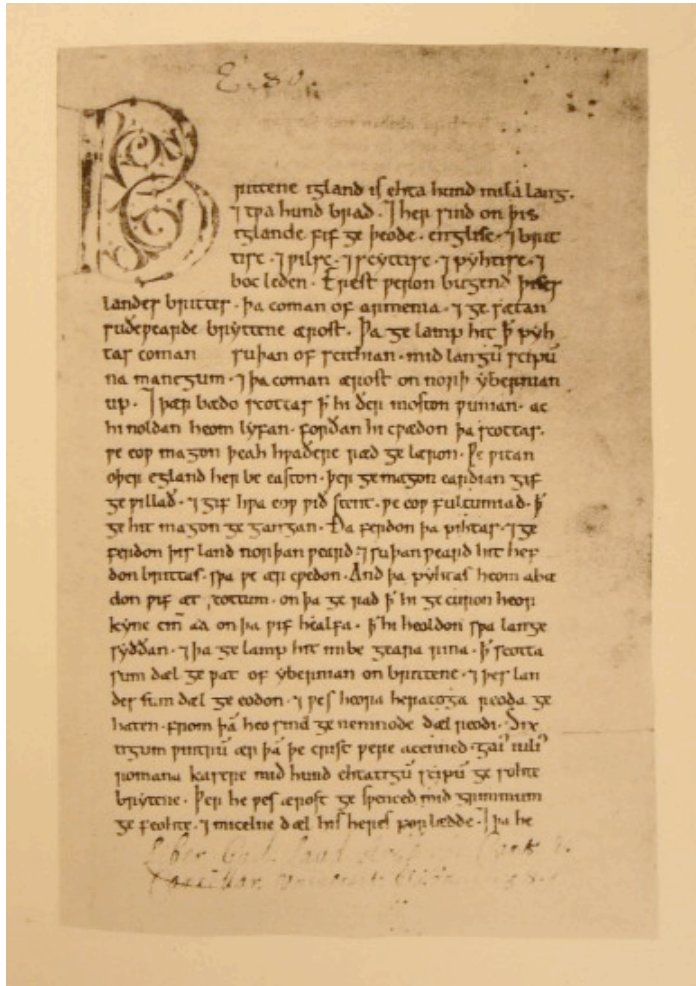 E. 80.
Brittene igland is ehta hund mila lang.
⁊ tƿa hund brad. ⁊ her sind on þis
iglande fif ge þeode. englisc. ⁊ brit
tisc. ⁊ ƿilsc. ⁊ scyttisc. ⁊ pyhtisc. ⁊
boc leden. Erest ƿeron bugend þises
landes brittes. þa coman of armenia. ⁊ ge sætan
suðeƿearde bryttene ærost. Þa ge lamp hit ꝥ pyh
tas coman suþan of scithian. mid langū scipū
na manegum. ⁊ þa coman ærost on norþ ybernian
up. ⁊ þær bædo scottas ꝥ hi ðer moston ƿunian. ac
hi noldan heom lyfan. forðan hi cƿædon þa scottas.
ƿe eoƿ magon þeah hƿaðere ræd ge læron. Ƿe ƿitan
oþer egland her be easton. þer ge magon eardian gif
ge ƿillað. ⁊ gif hƿa eoƿ ƿið stent. ƿe eoƿ fultumiað. ꝥ
ge hit magon ge gangan. Ða ferdon þa pihtas. ⁊ ge
ferdon þis land norþan ƿeard. ⁊ suþan ƿeard hit hef
don brittas. sƿa ƿe ær cƿedon. And þa pyhtas heom abæ
don ƿif æt scottum. on þa ge rad ꝥ hi ge curon heor
kyne cīn aa on þa ƿif healfa. ꝥ hi heoldon sƿa lange
syððan. ⁊ þa ge lamp hit imbe geara rina. ꝥ scotta
sum dæl ge ƿat of ybernian on brittene. ⁊ þes lan
des sum dæl ge eodon. ⁊ ƿes heora heratoga reoda ge
haten. from þā heo sind ge nemnode dæl reodi. Six
tigum ƿintrū ær þā þe crist ƿere acenned. gaiˀ iuliˀ
romana kasere mid hund ehtatigū scipū ge sohte
brytene. Þer he ƿes ærost ge sƿenced mid grimmum
ge feohte. ⁊ micelne dæl his heres forlædde. ⁊ þa he
liber Guil. laud